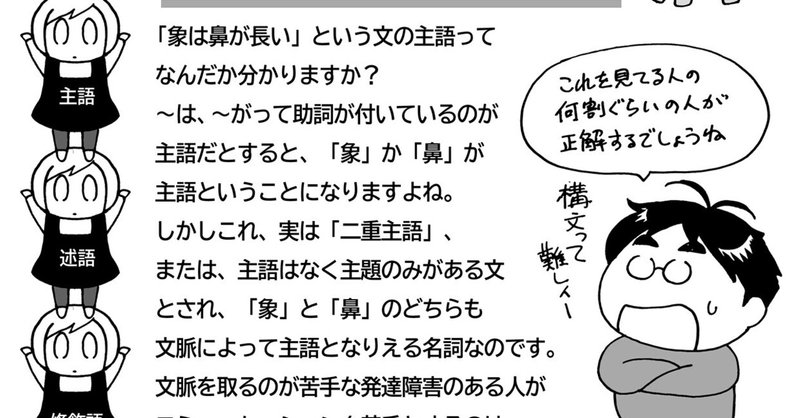 「象は鼻が長い」という文の主語って
なんだか分かりますか?
～は、～がって助詞が付いているのが
主語だとすると、「象」か「鼻」が
主語ということになりますよね。
しかしこれ、実は「二重主語」、
または、主語はなく主題のみがある文
とされ、「象」と「鼻」のどちらも
文脈によって主語となりえる名詞なのです。
文脈を取るのが苦手な発達障害のある人が
主語
述語
修飾語
これを見てる人の
何割ぐらいの人が
正解するでしょうね
構文って
難しィー